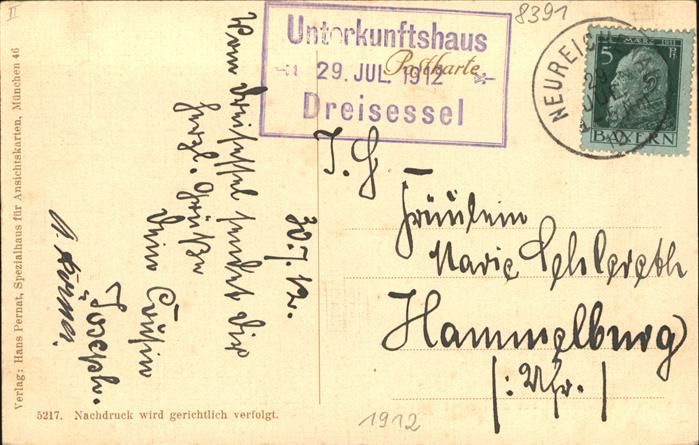 II
8391
Unterkunftshaus
29. JUL. 1912
Dreisessel
Postkarte
NEUREICHENAU
5 MÄRZ 1911 Pf
BAYERN
30.7.12.
Vom Dreisessel sendet dir
herzl. Grüße
Deine
Joseph.
T. G
Fräulein
Marie
Hammelburg
/: Ufr. :/
1912
5217. Nachdruck wird gerichtlich verfolgt.
Verlag: Hans Pernat, Spezialhaus für Ansichtskarten, München 46